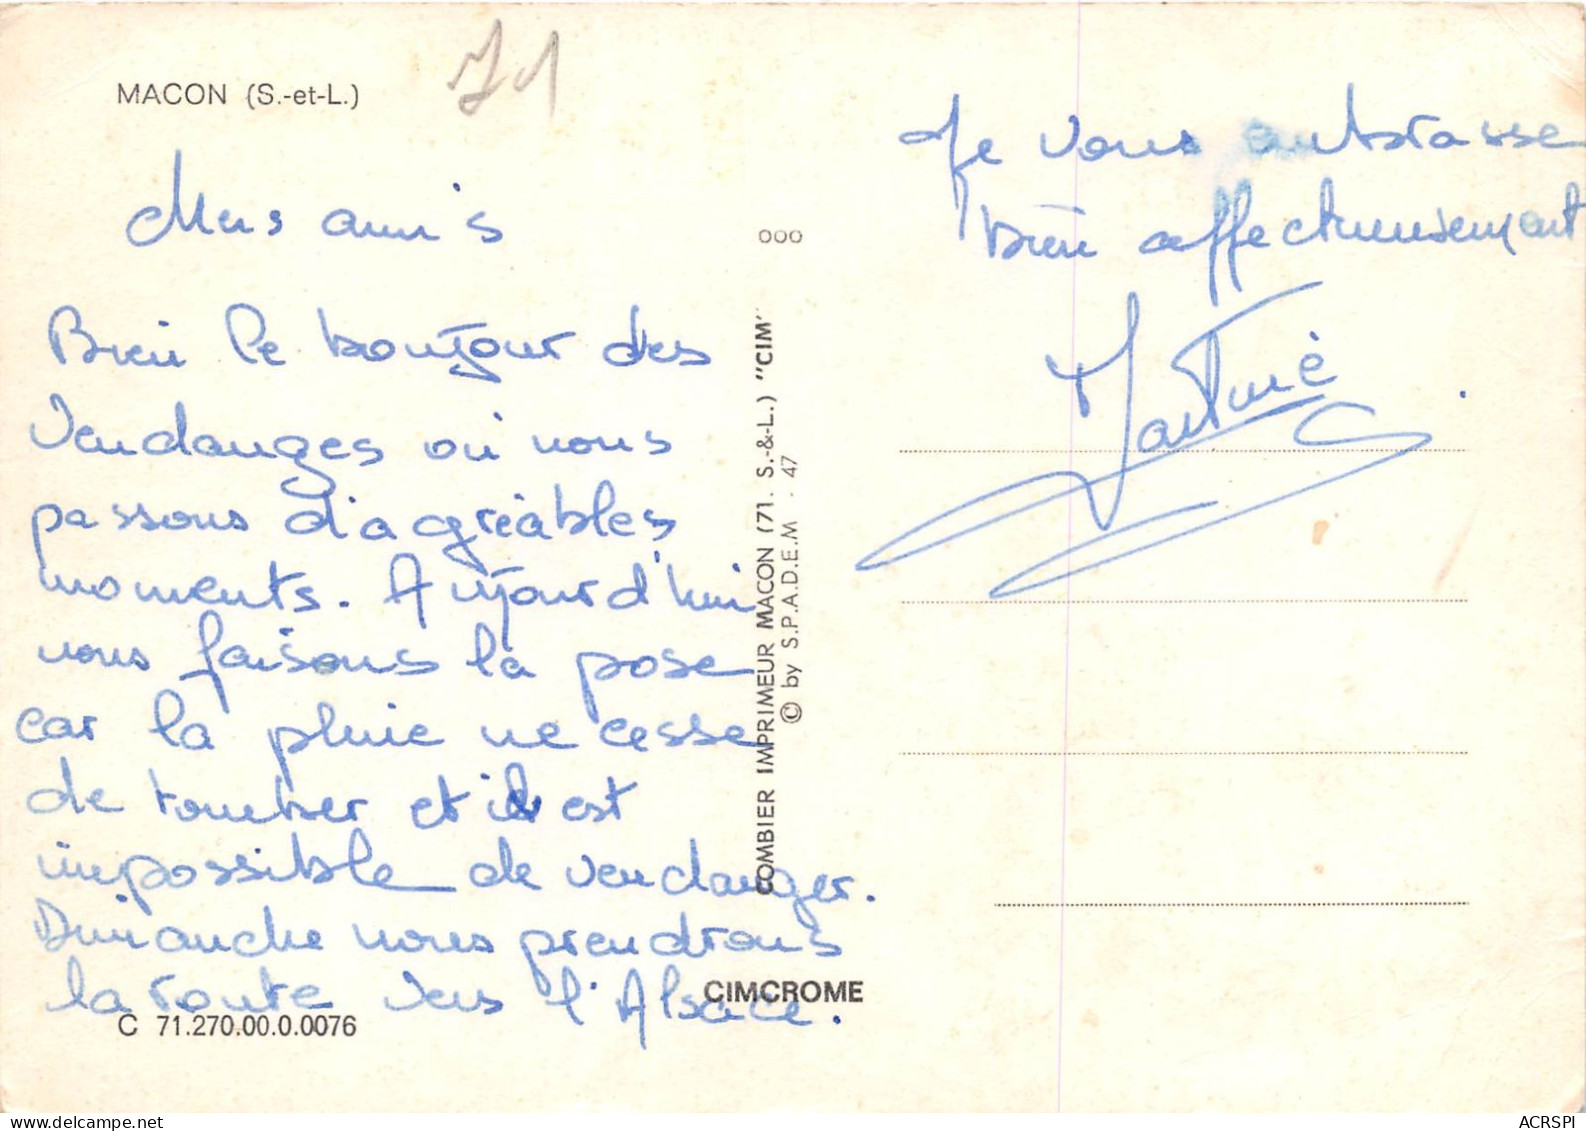 MACON (S.-et-L.)
71
Mes amis
Bien le bonjour des
Vendanges où nous
passons d'agréables
moments. Aujourd'hui
nous faisons la pose
car la pluie ne cesse
de tomber et il est
impossible de vendanger.
Dimanche nous prendrons
la route vers l'Alsace.
C 71.270.00.0.0076
000
COMBIER IMPRIMEUR MACON (71. S.-&-L.) "CIM"
© by S.P.A.D.E.M. 47
CIMCROME
Je vous embrasse
bien affectueusement
Martine
ACRSPI